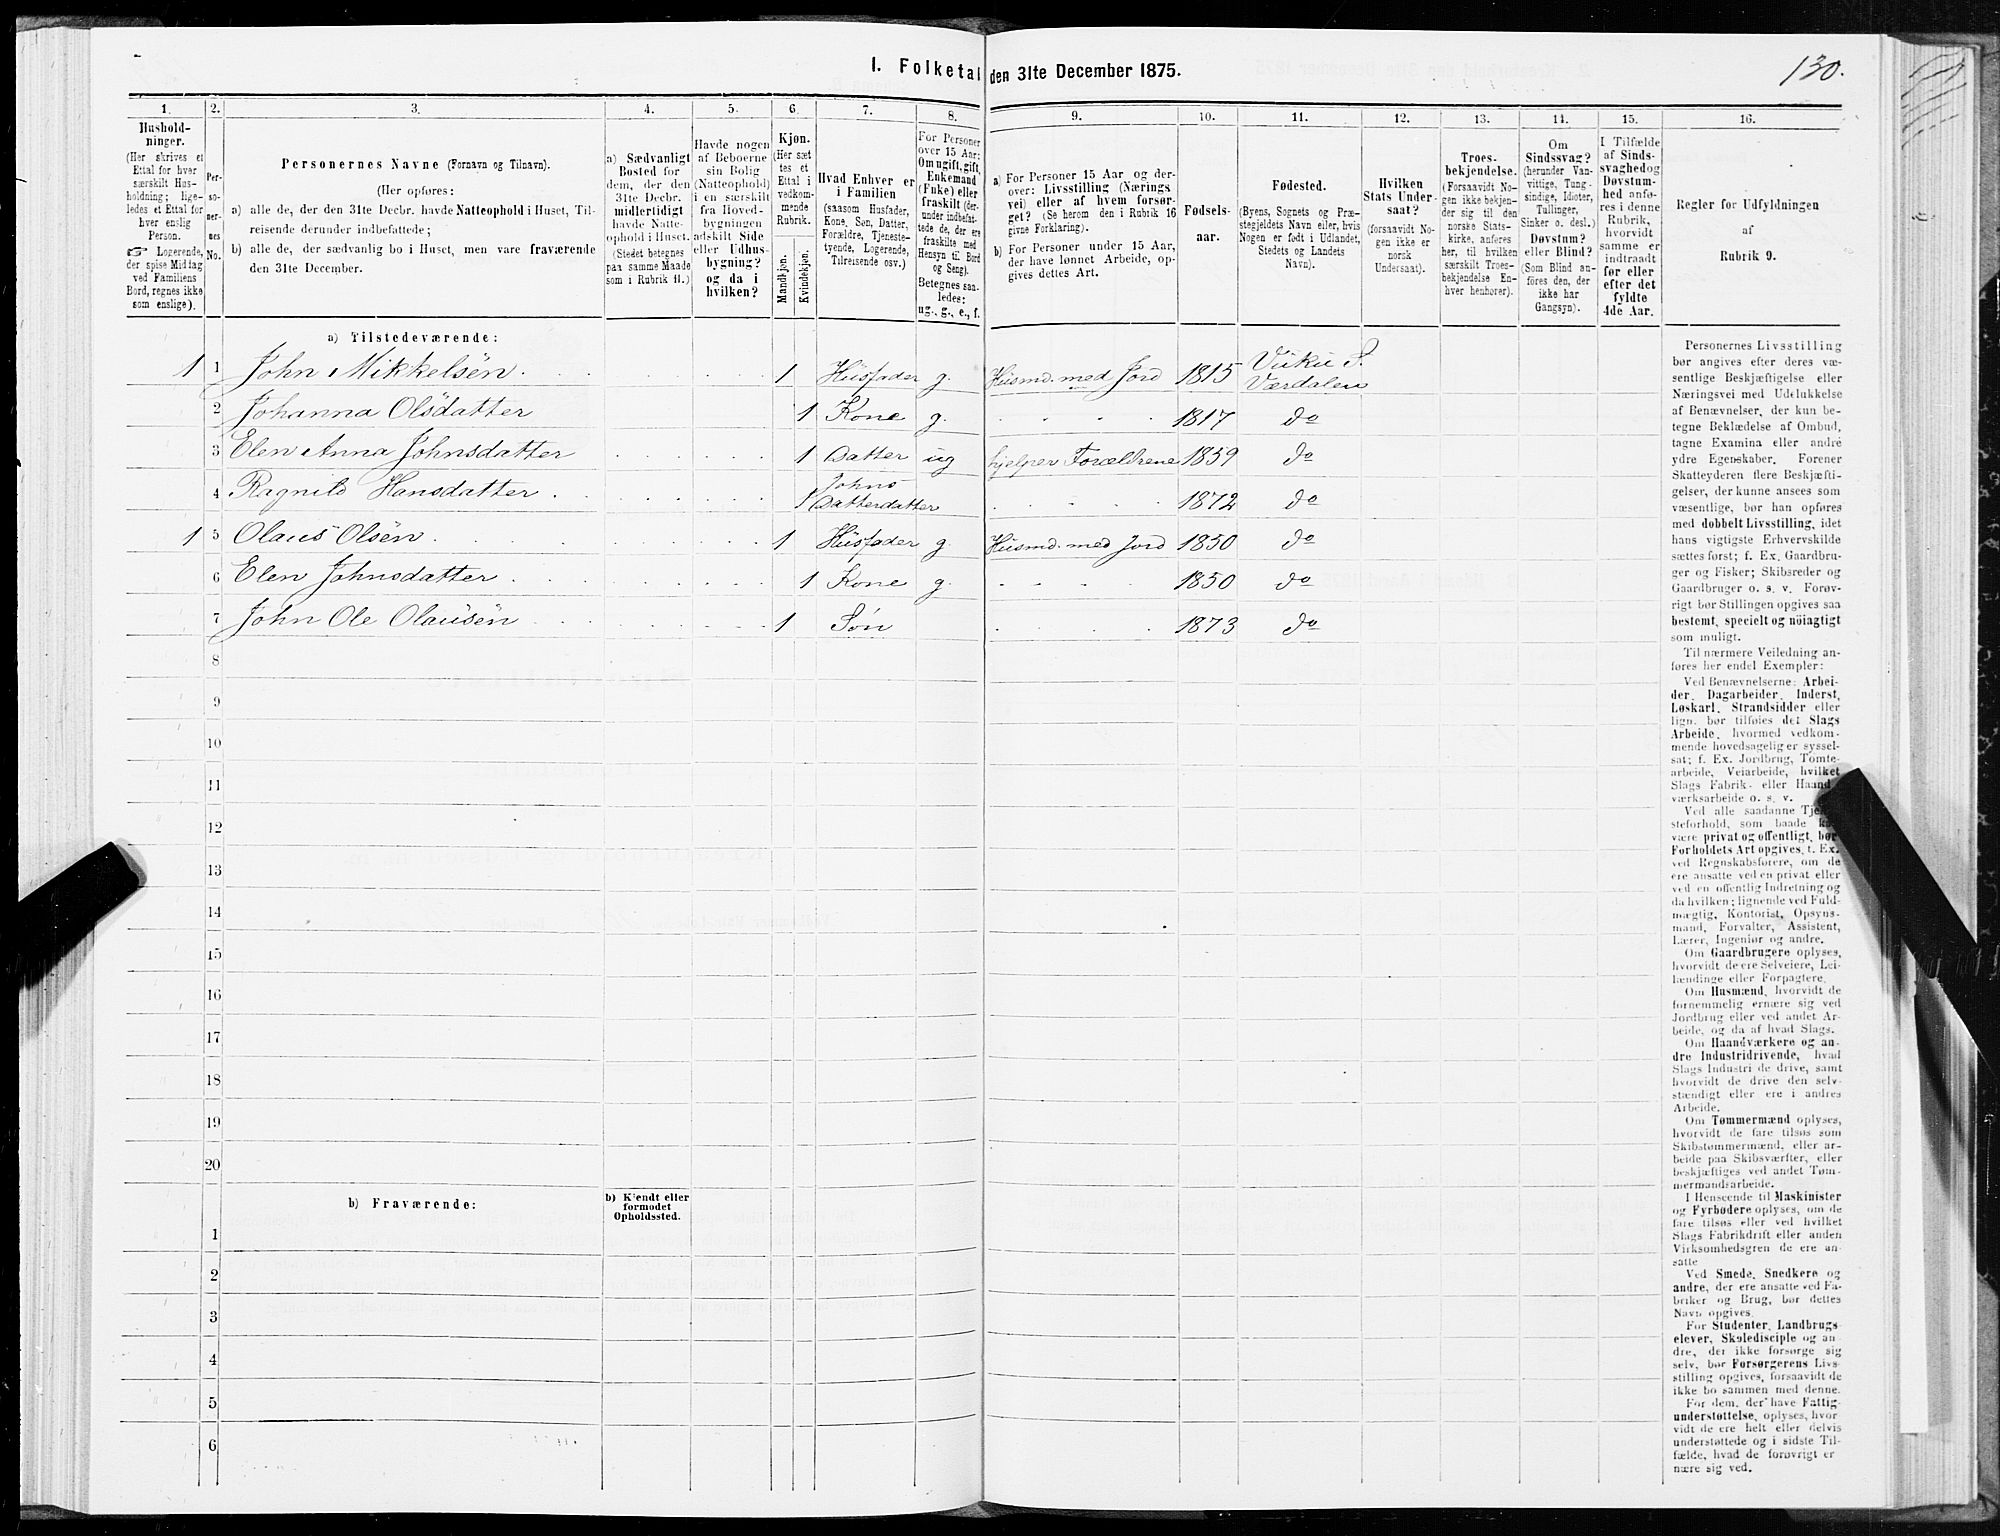 I. Folketal den 31te December 1875.
130.
1.
Hushold-
ninger.
(Her skrives et
Ettal for hver
særskilt Hus-
holdning; lige-
ledes et Ettal for
hver enslig
Person.
☞ Logerende,
der spise Middag
ved Familiens
Bord, regnes ikke
som enslige).
2.
Per-
so-
ner-
nes
No.
3.
Personernes Navne (Fornavn og Tilnavn).
(Her opføres:
a) alle de, der den 31te Decbr. havde Natteophold i Huset, Til-
reisende derunder indbefattede;
b) alle de, der sædvanlig bo i Huset, men vare fraværende
den 31te December.
4.
a) Sædvanligt
Bosted for
dem, der den
31te Decbr.
midlertidigt
havde Natte-
ophold i Huset.
(Stedet betegnes
paa samme Maade
som i Rubrik 11.)
5.
Havde nogen
af Beboerne
sin Bolig
(Natteophold)
i en særskilt
fra Hoved-
bygningen
adskilt Side
eller Udhus-
bygning?
og da i
hvilken?
6.
Kjøn.
(Her sæt
tes et
Ettal i
vedkom-
mende
Rubrik.
Mandkjøn.
Kvindekjøn.
7.
Hvad Enhver er
i Familien
(saasom Husfader,
Kone, Søn, Datter,
Forældre, Tjeneste-
tyende, Logerende,
Tilreisende osv.)
8.
For Personer
over 15 Aar:
Om ugift, gift,
Enkemand
(Enke) eller
fraskilt (der-
under indbefat-
tede de, der ere
fraskilte med
Hensyn til Bord
og Seng).
Betegnes saa-
ledes:
ug., g., e., f.
9.
a) For Personer 15 Aar og der-
over: Livsstilling (Nærings
vei) eller af hvem forsør-
get? (Se herom den i Rubrik 16
givne Forklaring).
b) For Personer under 15 Aar,
der have lønnet Arbeide, op-
gives dettes Art.
10.
Fødsels-
aar.
11.
Fødested.
(Byens, Sognets og Præ-
stegjeldets Navn eller, hvis
Nogen er født i Udlandet,
Stedets og Landets
Navn).
12.
Hvilken
Stats Under-
saat?
(forsaavidt No-
gen ikke er
norsk
Undersaat).
13.
Troes-
bekjendelse.
(Forsaavidt No-
gen ikke bekjen-
der sig til den
norske Stats-
kirke, anføres
her, til hvilken
særskilt Troes-
bekjendelse En-
hver henhører).
14.
Om
Sindssvag?
(herunder Van-
vittige, Tung-
sindige, Idioter,
Tullinger,
Sinker o. desl.)
Døvstum?
eller Blind?
(Som Blind an-
føres den, der
ikke har
Gangsyn).
15.
I Tilfælde
af Sinds-
svaghed og
Døvstum-
hed anfø-
res i denne
Rubrik,
hvorvidt
samme er
indtraadt
før eller
efter det
fyldte
4de Aar.
16.
Regler for Udfyldningen
af
Rubrik 9.
a) Tilstedeværende:
1 1 John Mikkelsen 1 Husfader g. Husmd. med Jord 1815 Vuku S. Værdalen
2 Johanna Olsdatter 1 Kone g. 1817 do
3 Elen Anna Johnsdatter 1 Datter ug hjelper Forældrene 1859 do
4 Ragnild Hansdatter 1 Johns Datterdatter 1872 do
1 5 Olaus Olsen 1 Husfader g. Husmd. med Jord 1850 do
6 Elen Johnsdatter 1 Kone g. 1850 do
7 John Ole Olausen 1 Søn 1873 do
8
9
10
11
12
13
14
15
16
17
18
19
20
b) Fraværende:
b) Kjendt eller
formodet
Opholdssted.
1
2
3
4
5
6
Personernes Livsstilling
bør angives efter deres væ-
sentlige Beskjæftigelse eller
Næringsvei med Udelukkelse
af Benævnelser, der kun be-
tegne Beklædelse af Ombud,
tagne Examina eller andre
ydre Egenskaber. Forener
Skatteyderen flere Beskjæfti-
gelser, der kunne ansees som
væsentlige, bør han opføres
med dobbelt Livsstilling, idet
hans vigtigste Erhvervskilde
sættes først; f. Ex. Gaardbru-
ger og Fisker; Skibsreder og
Gaardbruger o. s. v. Forøv-
rigt bør Stillingen opgives saa
bestemt, specielt og nöiagtigt
som muligt.
Til nærmere Veiledning an-
føres her endel Exempler:
Ved Benævnelserne: Arbei-
der, Dagarbeider, Inderst,
Løskarl, Strandsidder eller
lign. bør tilføies det Slags
Arbeide, hvormed vedkom-
mende hovedsagelig er syssel-
sat; f. Ex. Jordbrug, Tomte-
arbeide, Veiarbeide, hvilket
Slags Fabrik- eller Haand-
værksarbeide o. s. v.
Ved alle saadanne
steforhold, som baade
være privat og offentligt, bør
Forholdets Art opgives, f. Ex.
ved Regnskabsførere, om de
ere ansatte ved en privat eller
ved en offentlig Indretning og
da hvilken; lignende ved Fuld-
mægtig, Kontorist, Opsyns-
mand, Forvalter, Assistent,
Lærer, Ingeniør og andre.
Om Gaardbrugere oplyses,
hvorvidt de ere Selveiere, Lei-
lændinge eller Forpagtere.
Om Husmænd, hvorvidt de
fornemmelig ernære sig ved
Jordbrug eller ved andet Ar-
beide, og da af hvad Slags.
Om Haandværkere og an-
dre Industridrivende, hvad
Slags Industri de drive, samt
hvorvidt de drive den selv-
stændigt eller ere i andres
Arbeide.
Om Tømmermænd oplyses,
hvorvidt de fare tilsøs som
Skibstømmermænd, eller ar-
beide paa Skibsværfter, eller
beskjæftiges ved andet Tøm-
mermandsarbeide.
I Henseende til Maskinister
og Fyrbødere oplyses, om de
fare tilsøs eller ved hvilket
Slags Fabrikdrift eller anden
Virksomhedsgren de ere an-
satte
Ved Smede, Snedkere og
andre, der ere ansatte ved Fa-
briker og Brug, bør dettes
Navn opgives
For Studenter, Landbrugs-
elever, Skoledisciple og an-
dre, der ikke forsørge sig
selv, bør Forsørgerens Livs-
stilling opgives, forsaavidt de
ikke bo sammen med denne.
For dem, der have Fattig-
understøttelse, oplyses, hvor-
vidt de ere helt eller delvis
understøttede og i sidste Til-
fælde, hvad de forøvrigt er-
nære sig ved.